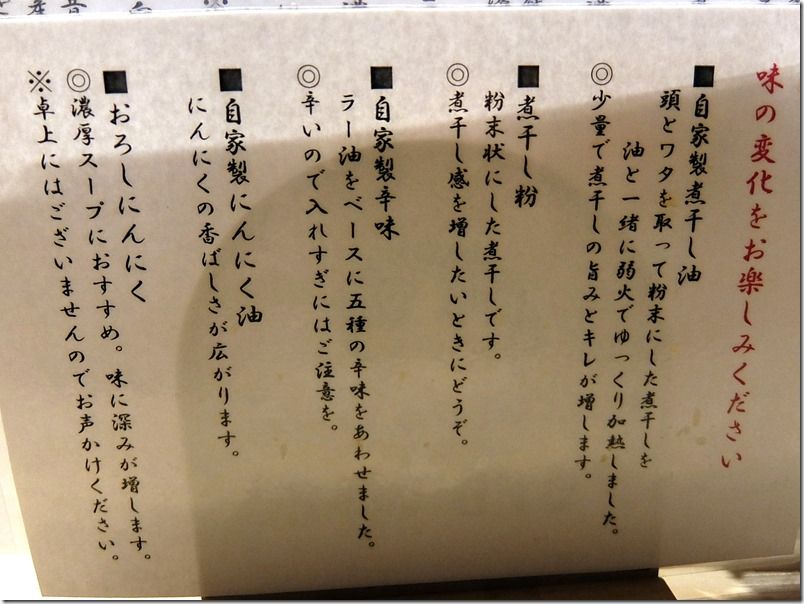 味の変化をお楽しみください
■自家製煮干し油
頭とワタを取って粉末にした煮干しを
油と一緒に弱火でゆっくり加熱しました。
◎少量で煮干しの旨みとキレが増します。
■煮干し粉
粉末状にした煮干しです。
◎煮干し感を増したいときにどうぞ。
■自家製辛味
ラー油をベースに五種の辛味をあわせました。
◎辛いので入れすぎにはご注意を。
■自家製にんにく油
にんにくの香ばしさが広がります。
■おろしにんにく
◎濃厚スープにおすすめ。味に深みが増します。
※卓上にはございませんのでお声かけください。